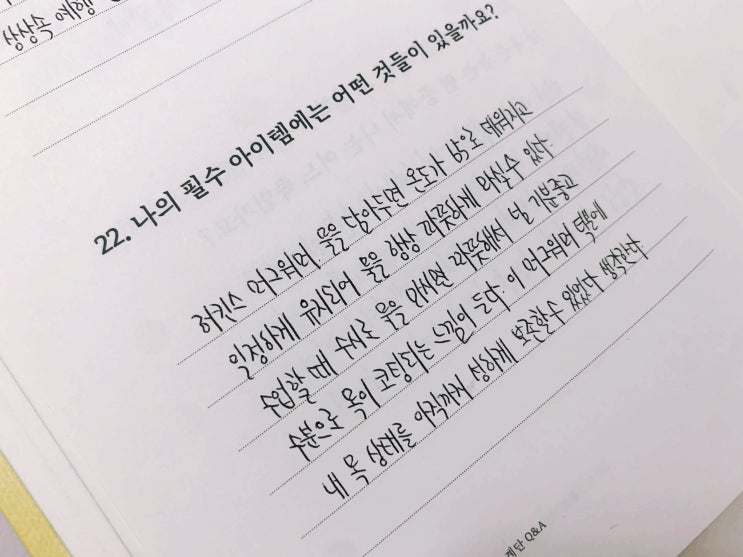 상상속 여행
22. 나의 필수 아이템에는 어떤 것들이 있을까요?
허킨스 머그워머 물을 담아두면 온도가 65°로 데워지고
일정하게 유지되어 물을 항상 따뜻하게 마실수 있다.
수업할 때 수시로 물을 마시면 따뜻해서 넘 기분좋고
수분으로 목이 코팅되는 느낌이 든다 이 머그워머 덕분에
내 목 상태를 아직까지 성하게 보존할수 있었다 생각한다
계단 Q&A